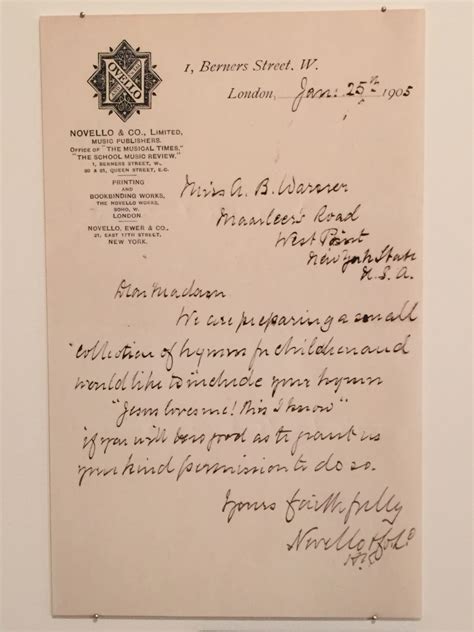 NOVELLO
1, Berners Street. W.
London, Jan. 25th 1905
NOVELLO & CO., LIMITED,
MUSIC PUBLISHERS.
OFFICE OF "THE MUSICAL TIMES,"
"THE SCHOOL MUSIC REVIEW,"
1, BERNERS STREET, W.,
80 & 81, QUEEN STREET, E.C.
PRINTING
AND
BOOKBINDING WORKS,
THE NOVELLO WORKS,
SOHO, W.
LONDON
NOVELLO, EWER & CO.,
21, EAST 17TH STREET,
NEW YORK.
Miss A. B. Warner
Road
West Point
New York State
U.S.A.
Dear Madam
We are preparing a small
collection of hymns for children and
would like to include your hymn
"Jesus loves me! this I know"
if you will be so good as to grant us
your kind permission to do so.
Yours faithfully
Novello & Co Ld